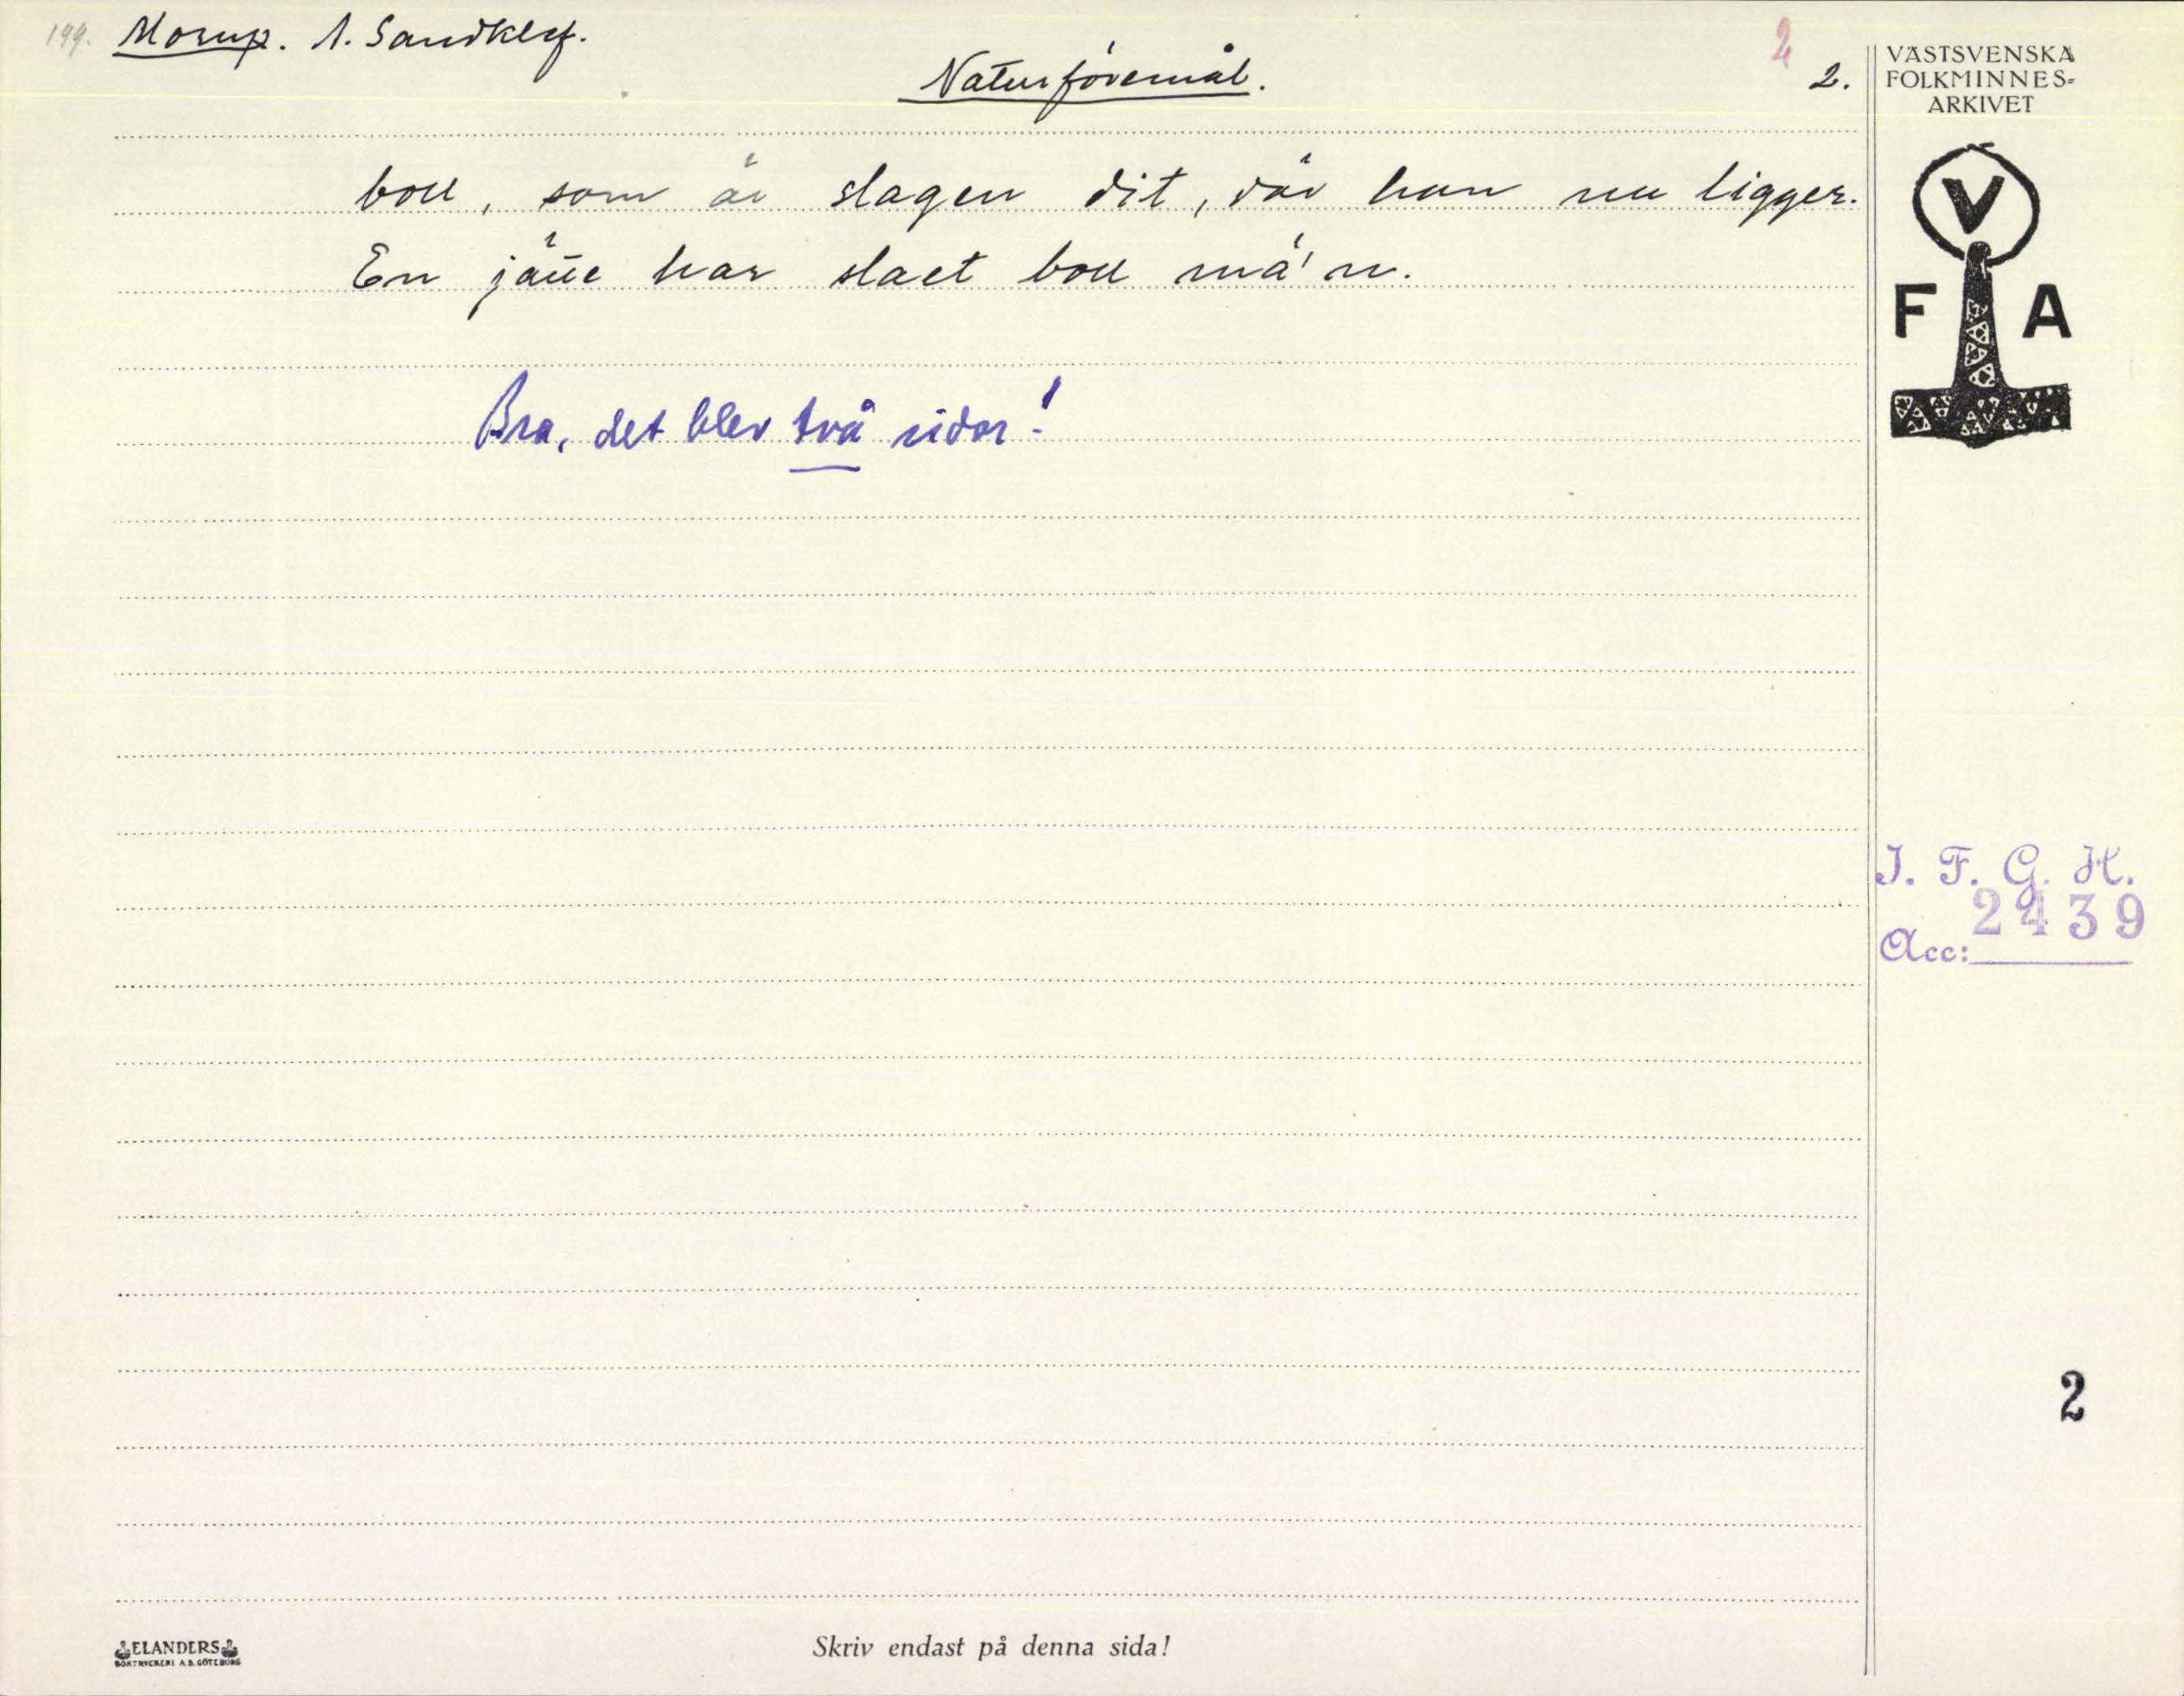 199. Morup. A. Sandklef.
Naturföremål.
2
2.
VÄSTSVENSKA
FOLKMINNES=
ARKIVET
boll, som är slagen dit, där han nu ligger.
En jätte har slaet boll må'n.
V
F A
Bra, det blev två sidor!
I. F. G. H.
2439
Acc:
2
ELANDERS
BOKTRYCKERI A.B. GÖTEBORG
Skriv endast på denna sida!